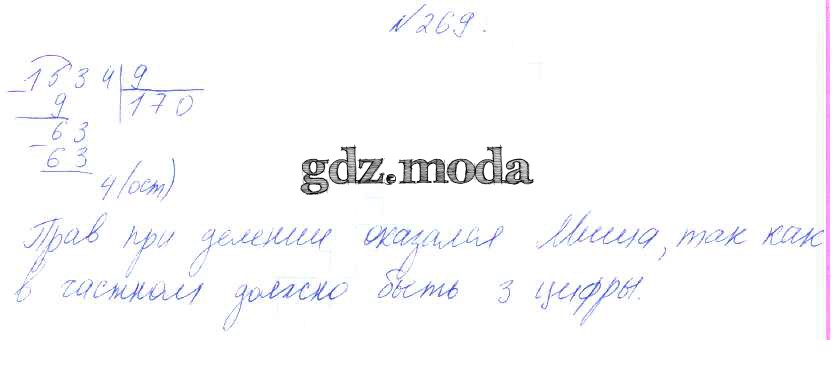 №269.
1534 | 9
9 | 170
63
63
4(ост)
gdz.moda
Прав при делении оказался Миша, так как
в частном должно быть 3 цифры.